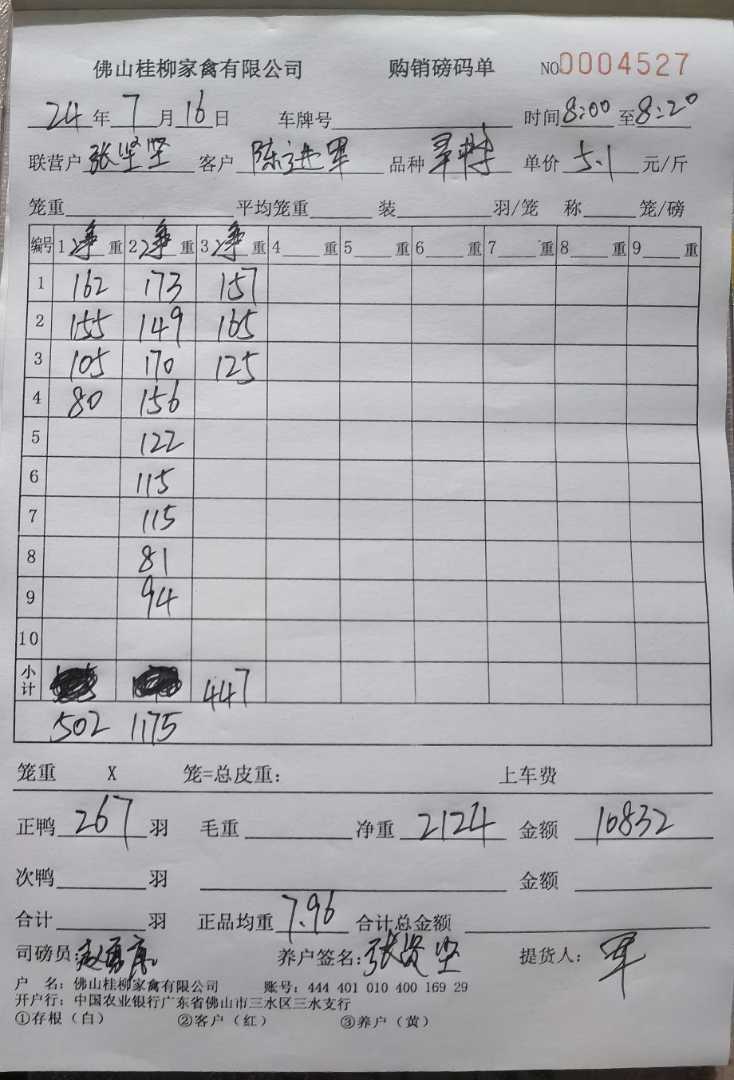 佛山桂柳家禽有限公司 购销磅码单 NO0004527
24年7月16日 车牌号 时间8:00至8:20
联营户张坚坚 客户陈进军 品种 单价5.1元/斤
笼重 平均笼重 装 羽/笼 称 笼/磅
编号 1净重 2净重 3净重 4 重 5 重 6 重 7 重 8 重 9 重
1 162 173 157
2 155 149 165
3 105 170 125
4 80 156
5 122
6 115
7 115
8 81
9 94
10
小计 447
502 1175
笼重 X 笼=总皮重: 上车费
正鸭267羽 毛重 净重2124 金额10832
次鸭 羽 金额
合计 羽 正品均重7.96 合计总金额
司磅员: 养户签名:张坚坚 提货人:军
户 名: 佛山桂柳家禽有限公司 账号: 444 401 010 400 169 29
开户行: 中国农业银行广东省佛山市三水区三水支行
①存根(白) ②客户(红) ③养户(黄)